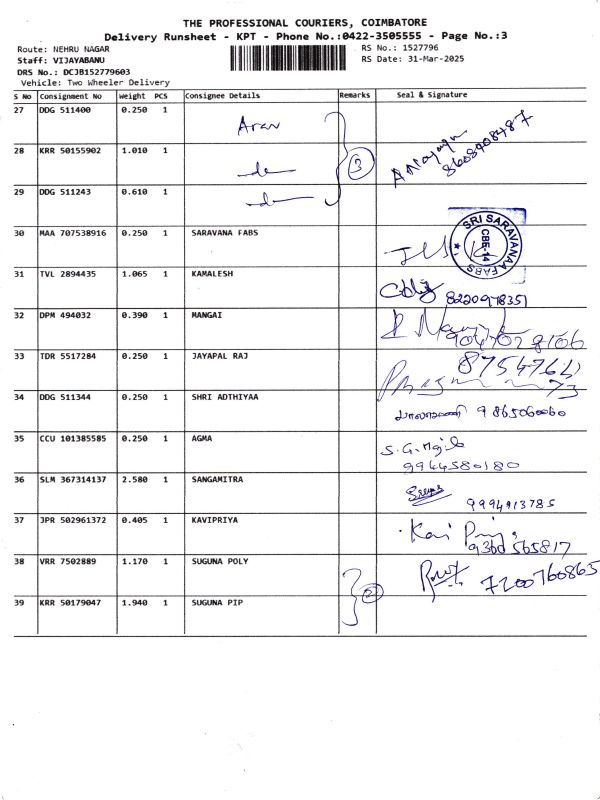 THE PROFESSIONAL COURIERS, COIMBATORE
Delivery Runsheet - KPT - Phone No.:0422-3505555 - Page No.:3
Route: NEHRU NAGAR
RS No.: 1527796
Staff: VIJAYABANU
RS Date: 31-Mar-2025
DRS No.: DCJB152779603
Vehicle: Two Wheeler Delivery
S No Consignment No Weight PCS Consignee Details Remarks Seal & Signature
27 DDG 511400 0.250 1
28 KRR 50155902 1.010 1 3
29 DDG 511243 0.610 1
30 MAA 707538916 0.250 1 SARAVANA FABS
SRI SARAVANAA FABS
CBE-14
31 TVL 2894435 1.065 1 KAMALESH
8220978351
32 DPM 494032 0.390 1 MANGAI
33 TDR 5517284 0.250 1 JAYAPAL RAJ
34 DDG 511344 0.250 1 SHRI ADTHIYAA
35 CCU 101385585 0.250 1 AGMA
9944580180
36 SLM 367314137 2.580 1 SANGAMITRA
9994913785
37 JPR 502961372 0.405 1 KAVIPRIYA
Kavi Priya
9360565817
38 VRR 7502889 1.170 1 SUGUNA POLY 2
7200760865
39 KRR 50179047 1.940 1 SUGUNA PIP